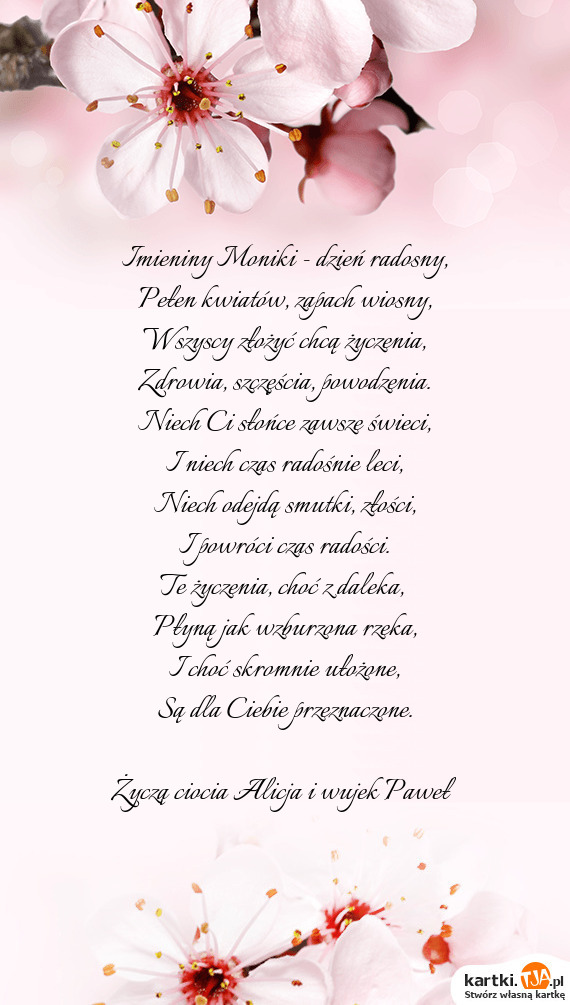 Imieniny Moniki - dzień radosny,
Pełen kwiatów, zapach wiosny,
Wszyscy złożyć chcą życzenia,
Zdrowia, szczęścia, powodzenia.
Niech Ci słońce zawsze świeci,
I niech czas radośnie leci,
Niech odejdą smutki, złości,
I powróci czas radości.
Te życzenia, choć z daleka,
Płyną jak wzburzona rzeka,
I choć skromnie ułożone,
Są dla Ciebie przeznaczone.
Życzą ciocia Alicja i wujek Paweł
kartki.TJA.pl
Stwórz własną kartkę